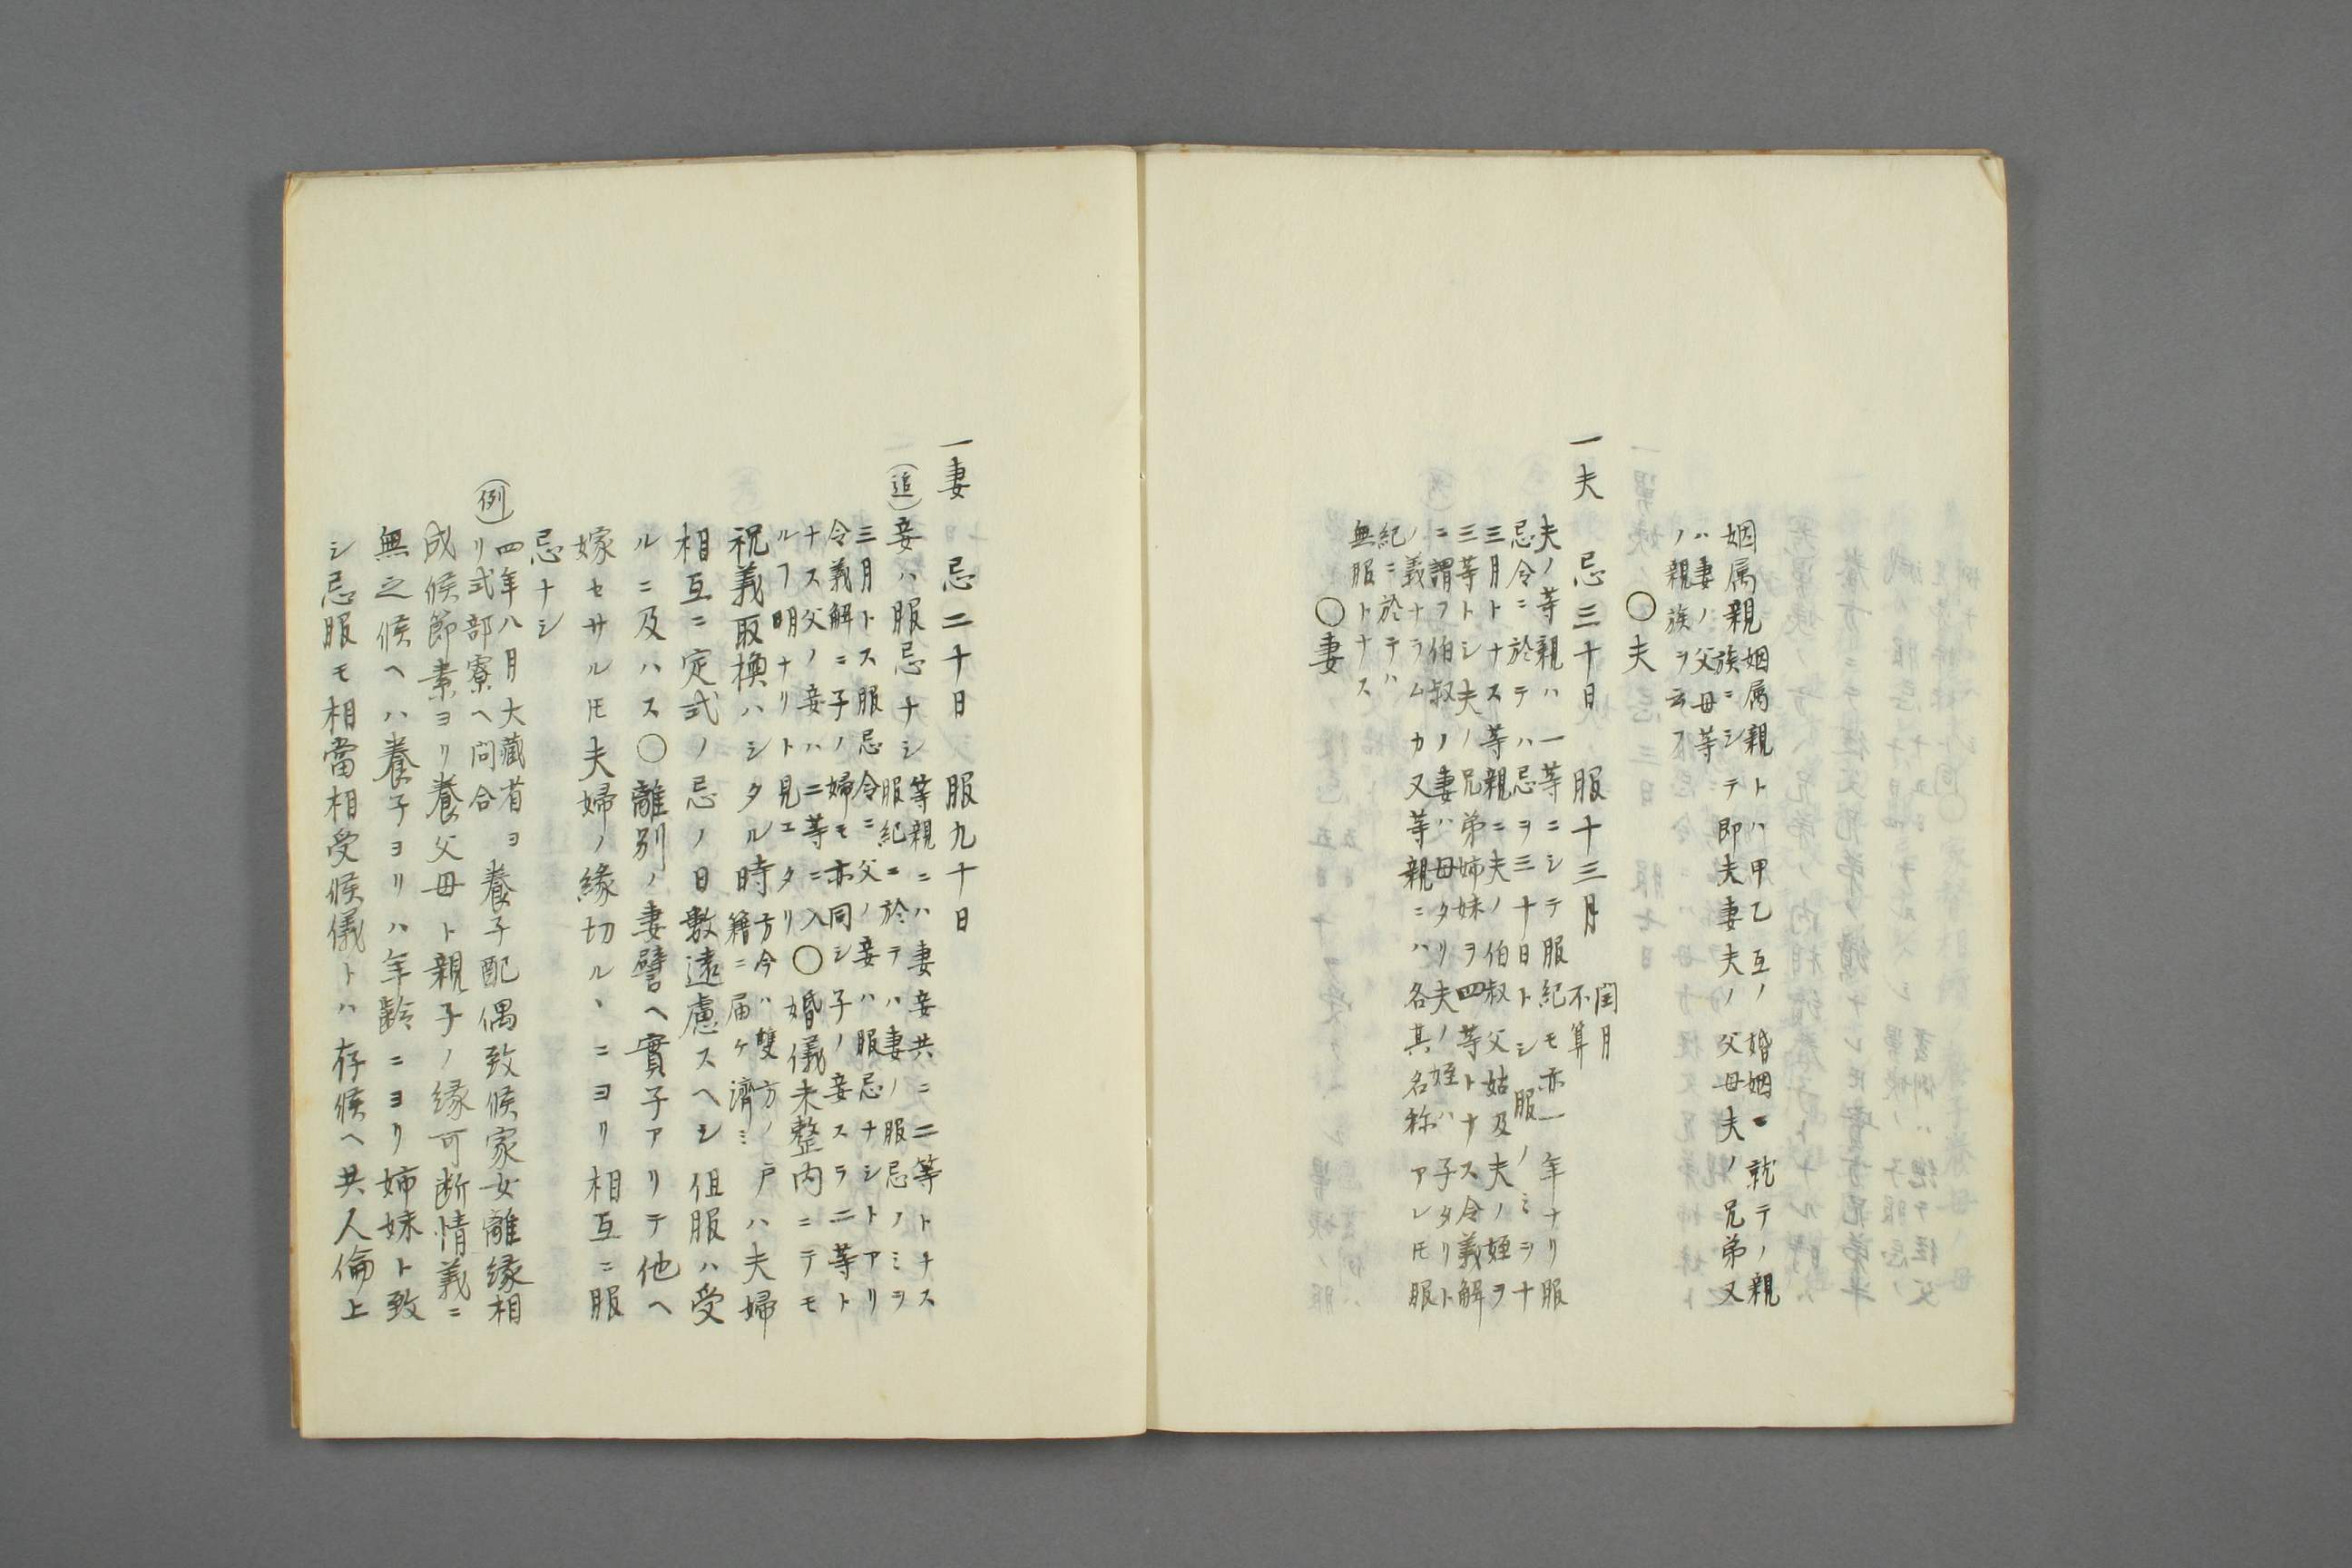 姻属親姻属親トハ甲乙互ノ婚姻ニ就テノ親
族ニシテ即夫妻夫ノ父母夫ノ兄弟又
ハ妻ノ父母等
ノ親族ヲ云フ
〇夫
一夫 忌三十日 服十三月 閏月
不算
夫ノ等親ハ一等ニシテ服紀モ亦一年ナリ服
忌令ニ於テハ忌ヲ三十日トシ服ノミヲ十
三月トナス等親ニ夫ノ伯叔父姑及夫ノ姪ヲ
三等トシ夫ノ兄弟姉妹ヲ四等トナス令義解
ニ謂フ伯叔ノ妻ハ母タリ夫ノ姪ハ子タリト
ノ義ナラムカ又等親ニハ各其名称アレ𪜈服
紀ニ於テハ
無服トナス
〇妻
一妻 忌二十日 服九十日
(追)妾ハ服忌ナシ等親ニハ妻妾共ニ二等トナス
服紀ニ於テハ妻ノ服忌ノミヲ
三月トス服忌令ニ父ノ妾ハ服忌ナシトアリ
令義解ニ子ノ婦モ亦同シ子ノ妾スラ二等ト
ナス父ノ妾ハ二等ニ入〇婚儀未整内ニテモ
ルフ明ナリト見エタリ
祝義取換ハシタル時方今ハ雙方ノ戸ハ夫婦
籍ニ届ケ濟ミ
相互ニ定式ノ忌ノ日數遠慮スヘシ伹服ハ受
ルニ及ハス〇離別ノ妻譬ヘ實子アリテ他ヘ
嫁セサル𪜈夫婦ノ緣切ルヽニヨリ相互ニ服
忌ナシ
(例)四年八月大藏省ヨ養子配偶致候家女離緣相
リ式部寮ヘ問合
成候節素ヨリ養父母ト親子ノ緣可断情義ニ
無之候ヘハ養子ヨリハ年齢ニヨリ姉妹ト致
シ忌服モ相當相受候儀トハ存候ヘ共人倫上